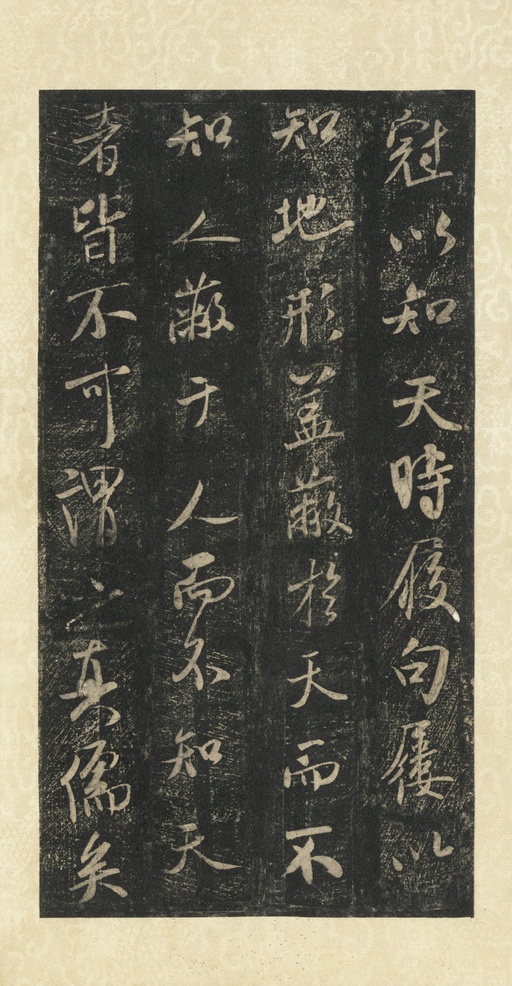 冠以知天時履句屨以
知地形蓋蔽於天而不
知人蔽于人而不知天
者皆不可謂之真儒矣